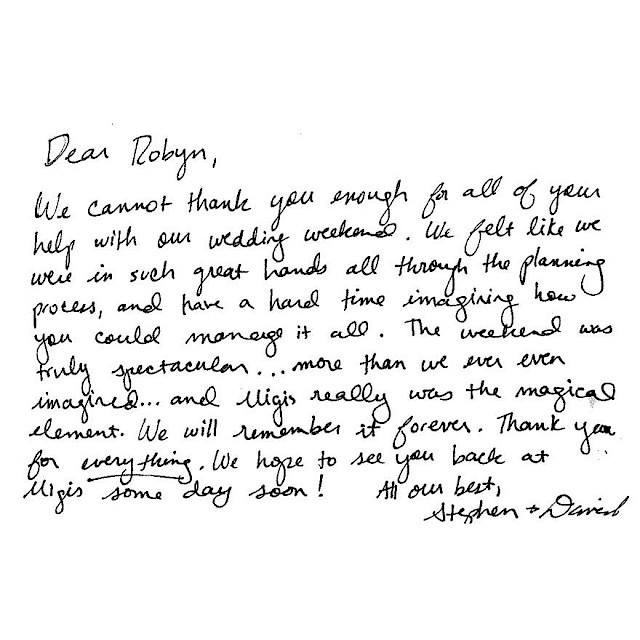 Dear Robyn,
We cannot thank you enough for all of your
help with our wedding weekend. We felt like we
were in such great hands all through the planning
process, and have a hard time imagining how
you could manage it all. The weekend was
truly spectacular...more than we ever even
imagined...and Migis really was the magical
element. We will remember it forever. Thank you
for everything. We hope to see you back at
Migis some day soon! All our best,
Stephen + David